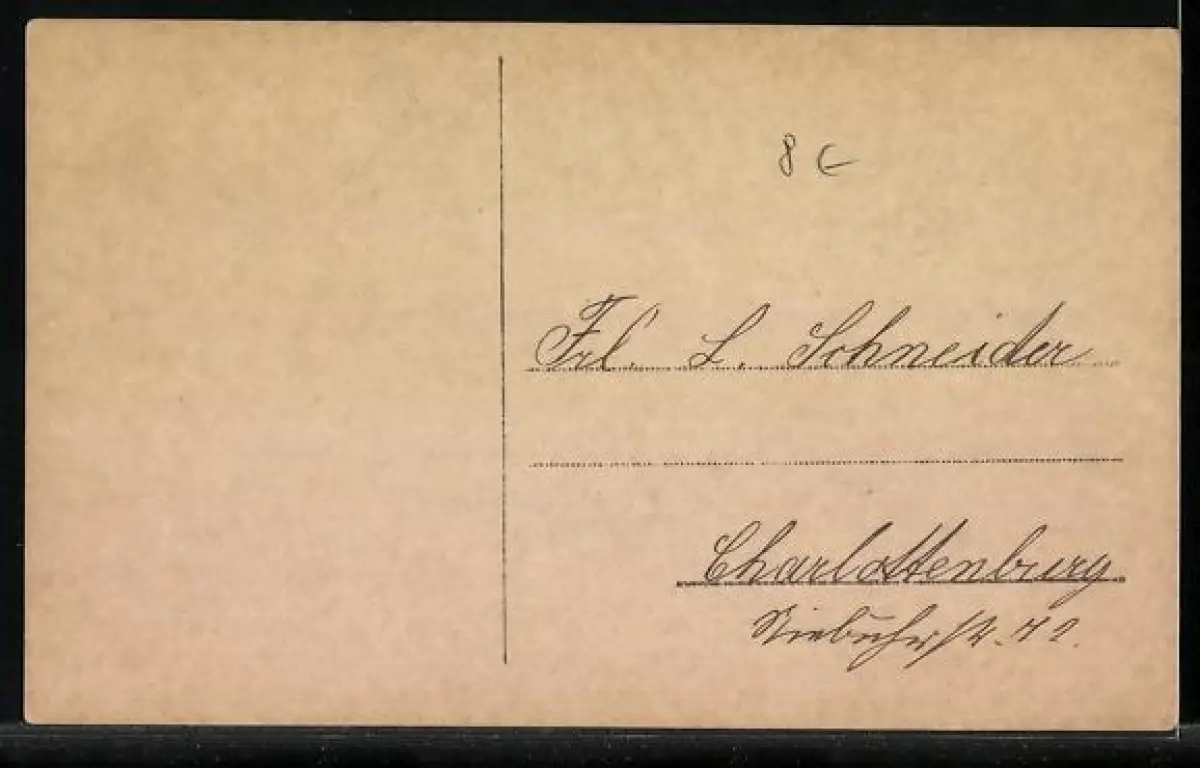 8 €
Frl. L. Schneider
Charlottenburg
Niebuhrstr.